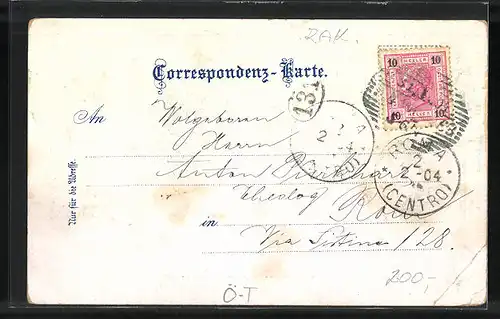 ZAK.
10 HELLER 10
10 HELLER 10
Correspondenz-Karte.
131
An Wolgeboren
Herrn
Anton
Theolog
in Rom
Via Sistina 128.
Nur für die Adresse.
ROMA
2
2-04
(CENTRO)
2
-4
200,-
Ö-T